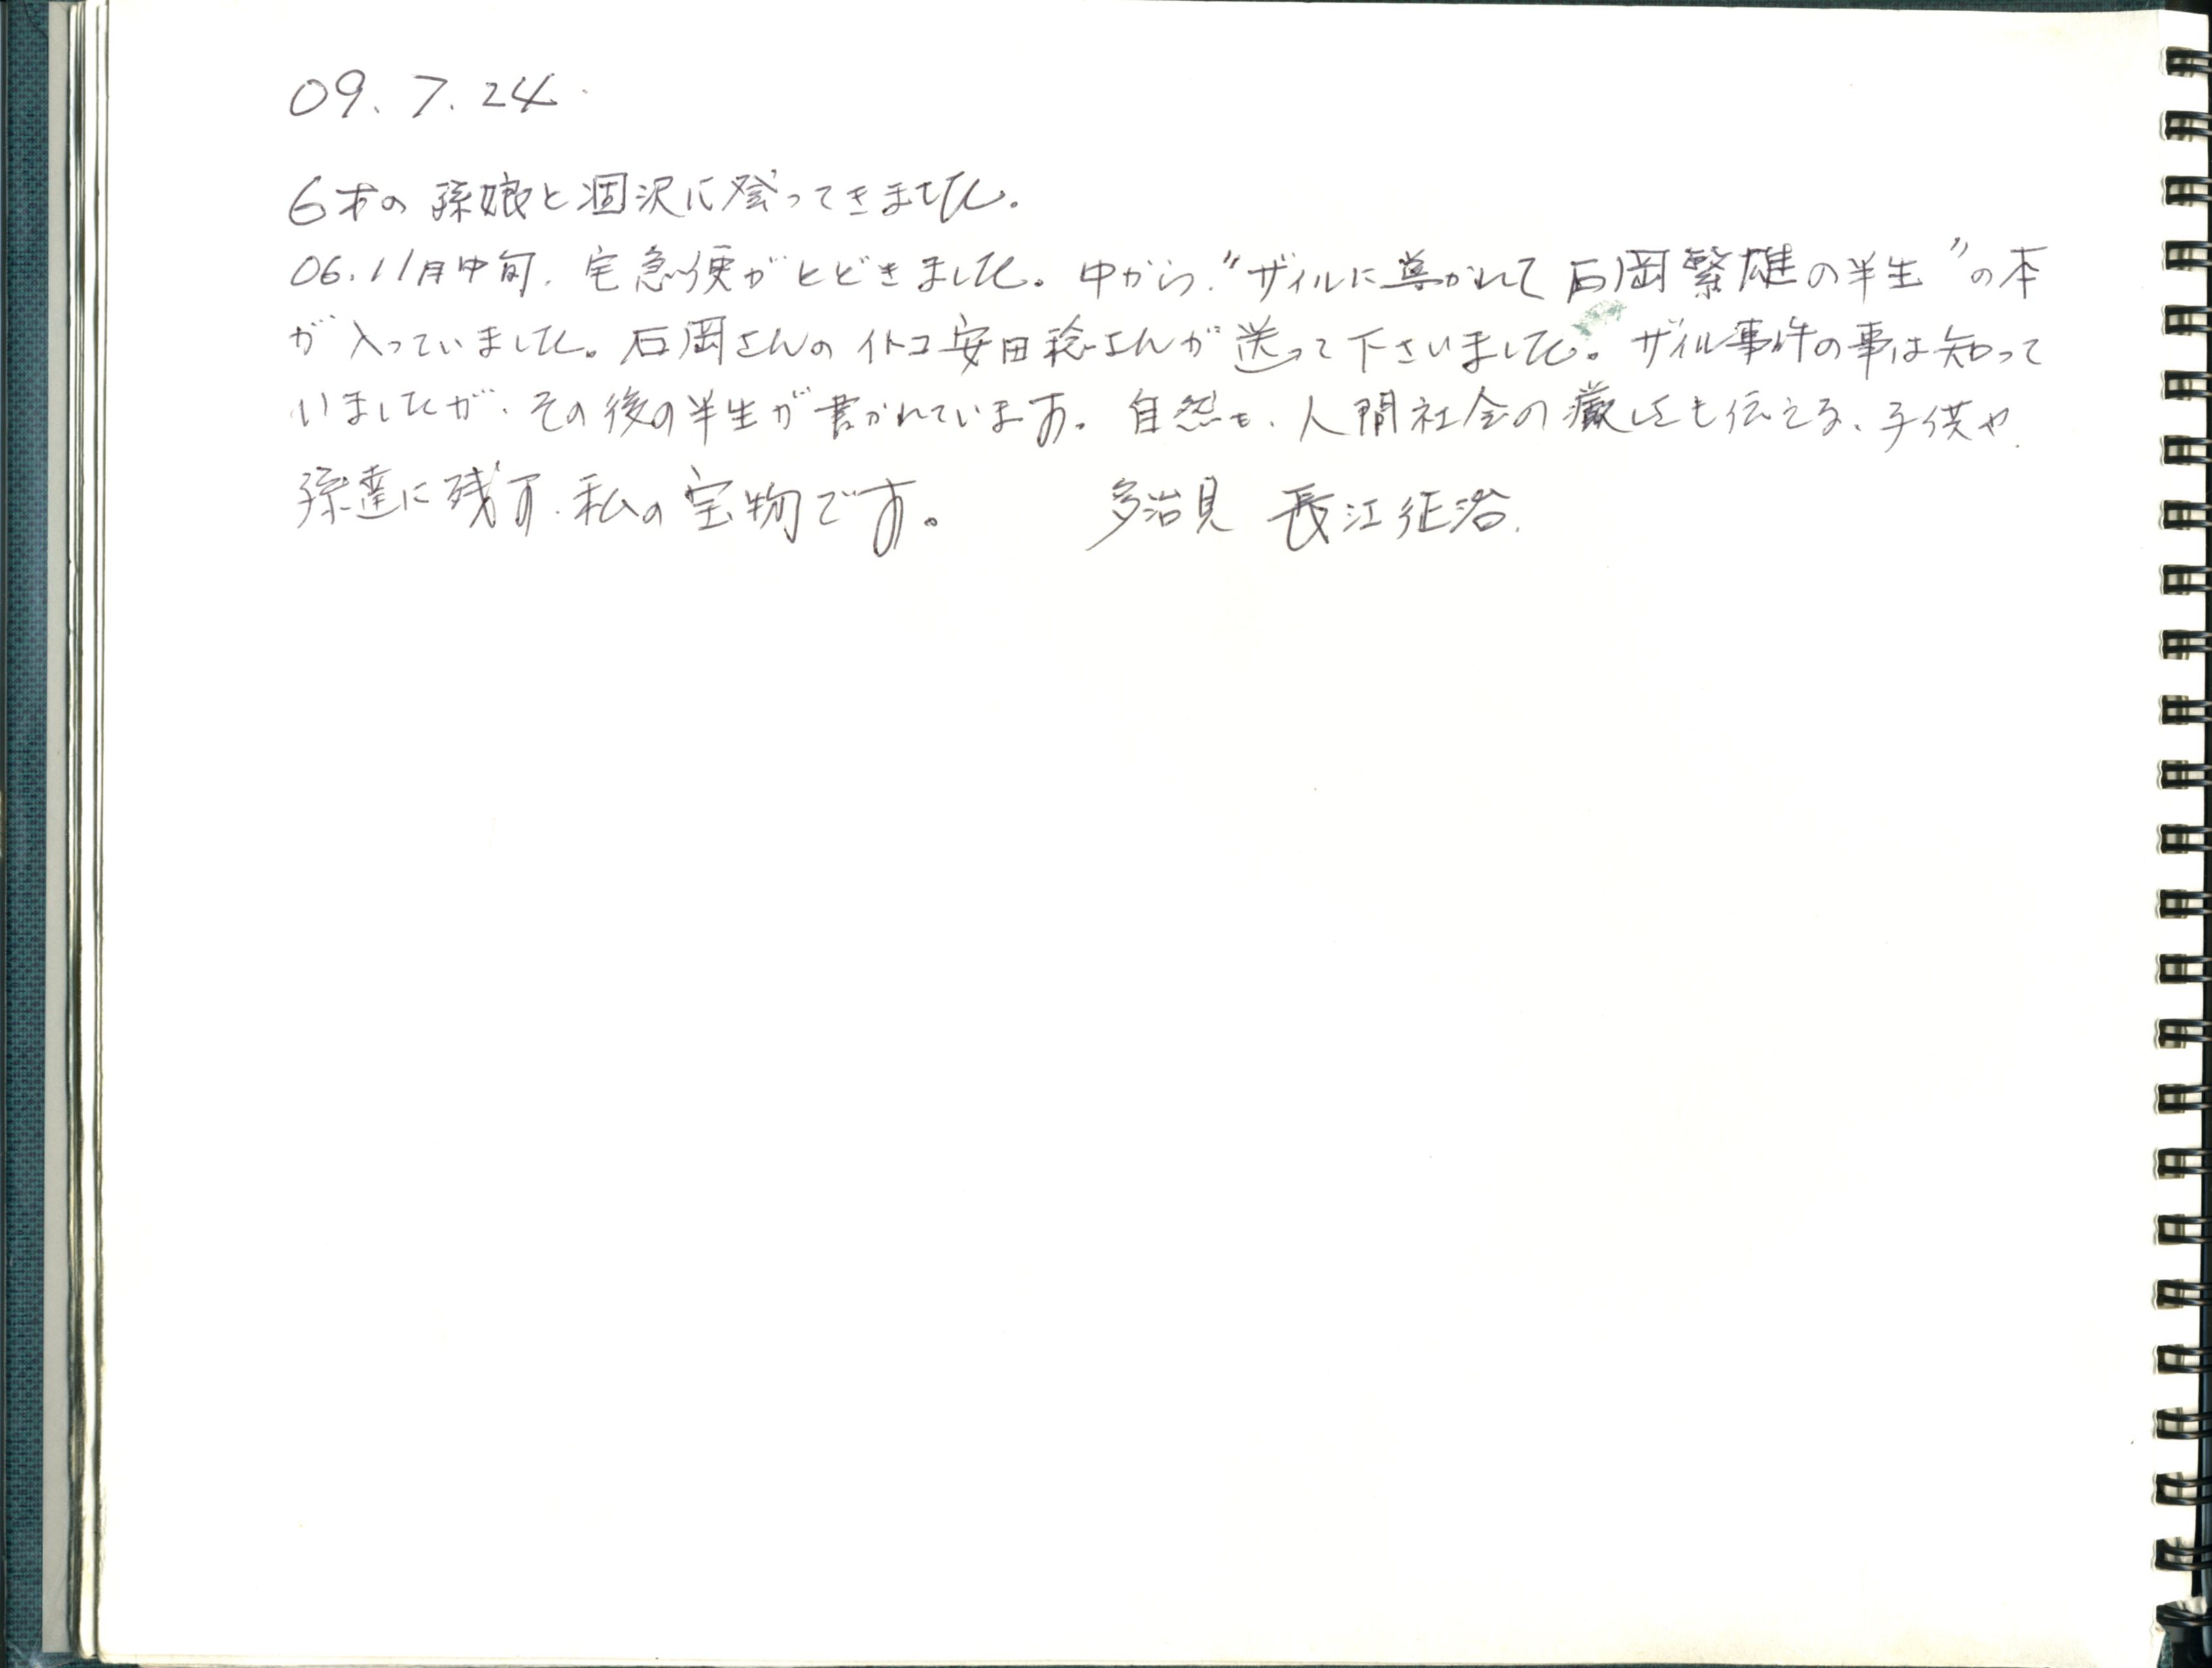 09.7.24.
6才の孫娘と涸沢に登ってきました。
06.11月中旬、宅急便がとどきました。中から、〝ザイルに導かれて 石岡繁雄の半生〟の本
が入っていました。石岡さんのイトコ安田さんが送って下さいました。ザイル事件の事は知って
いましたが、その後の半生が書かれています。自然も、人間社会の厳しさも伝える、子供や
孫達に残す、私の宝物です。 多治見 長江征治.